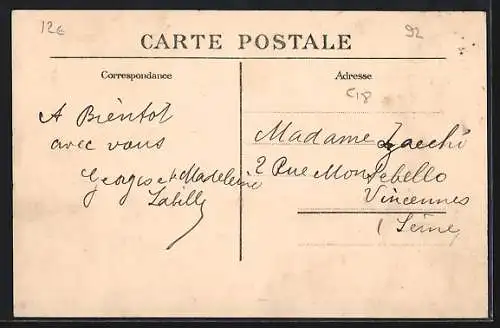 12€
92
CARTE POSTALE
Correspondance
Adresse
C18
A Bientot
avec vous
Georges et Madeleine
Labille
Madame Zacchi
2 Rue Montebello
Vincennes
(Seine)